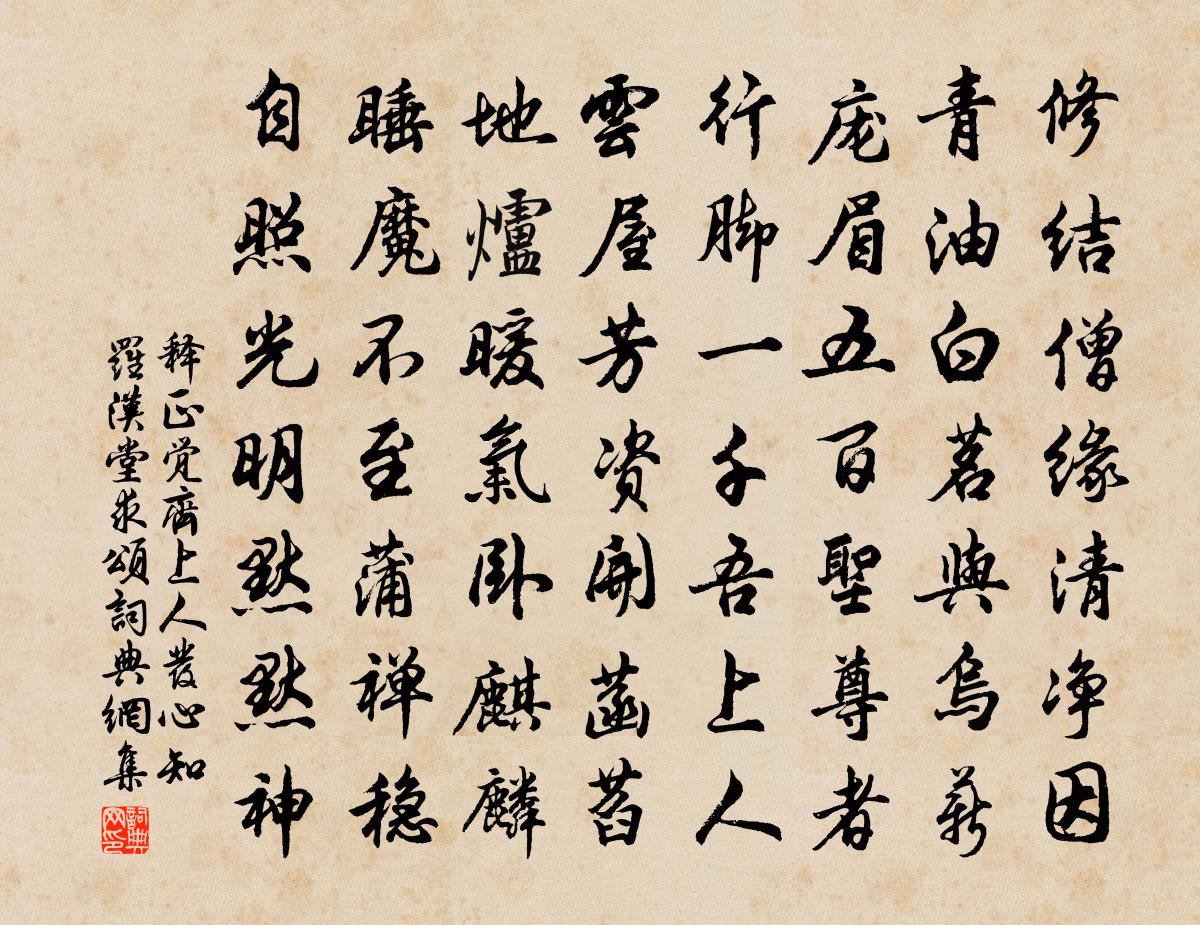 修结僧缘清净因
青油白茗與烏薪
庞眉五百聖尊者
行脚一千吾上人
雲屋芳资開菡萏
地爐暖氣卧麒麟
睡魔不至蒲禅稳
自照光明默默神
释正觉齋上人發心知
羅漢堂求頌詞典網集
詞典
网印